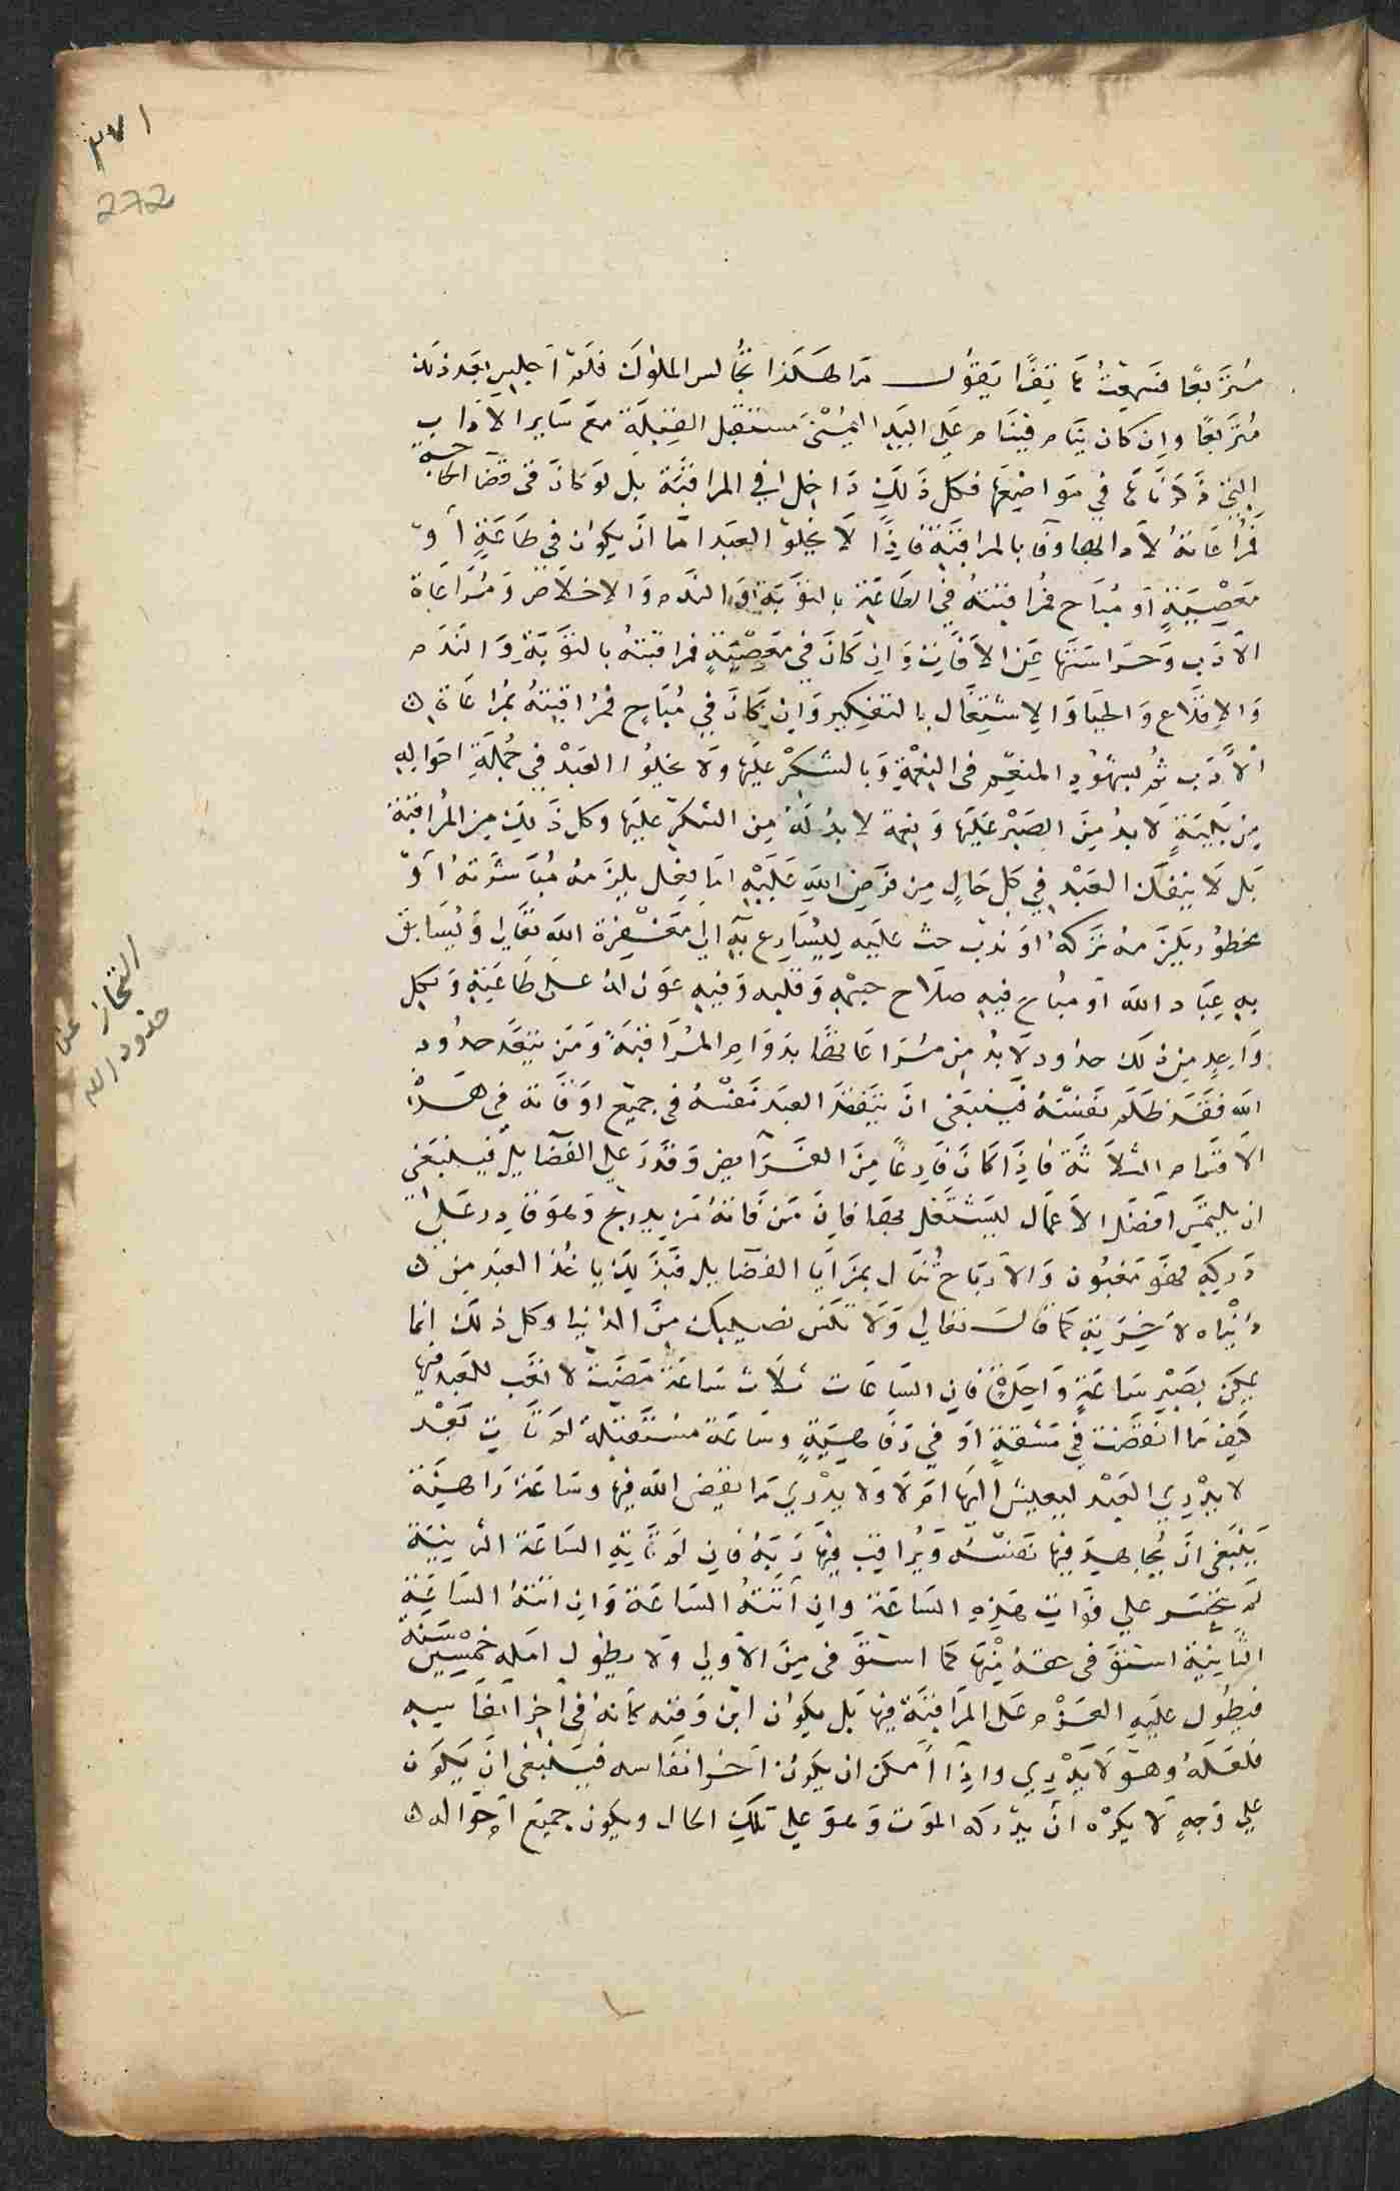 ٣٧١
272
متربعا فسمعت هاتفا يقول ما هكذا تجالس الملوك فلم اجلس بعد ذلك
متربعا وان كان ينام فينام على اليد اليمنى مستقبل القبلة مع ساير الاداب
التي ذكرناها في مواضعها فكل ذلك داخل في المراقبة بل لو كان في قضا الحاجة
فمراعاته لادابها وفا بالمراقبة فاذا لا يخلو العبد اما ان يكون في طاعة او
معصية او مباح فمراقبته في الطاعة بالتوبة والندم والاخلاص ومراعاة
الادب وحراستها عن الافات وان كان في معصية فمراقبته بالتوبة والندم
والاقلاع والحيا والاشتغال بالتفكير وان كان في مباح فمراقبته بمراعاة
الادب ثم بشهود المنعم في النعمة وبالشكر عليها ولا يخلوا العبد في جملة احواله
من بلية لا بد من الصبر عليها ونعمة لا بد له من الشكر عليها وكل ذلك من المراقبة
بل لا ينفك العبد في كل حال من فرض الله عليه اما فعل يلزمه مباشرته او
محظور يلزمه تركه او ندب حث عليه ليسارع به الى مغفرة الله تعالى ويسابق
به عباد الله او مباح فيه صلاح جسمه وقلبه وفيه عون له على طاعته ولكل
واحد من ذلك حدود لا بد من مراعاتها بدوام المراقبة ومن يتعد حدود
الله فقد ظلم نفسه فينبغي ان يتفقد العبد نفسه في جميع اوقاته في هذه
الاقسام الثلاثة فاذا كان فارغا من الفرايض وقدر على الفضايل فينبغي
ان يلتمس افضل الاعمال ليشتغل بها فان من فاته مزيد ربح وهو قادر على
دركه فهو مغبون والارباح تنال بمزايا الفضايل فبذلك ياخذ العبد من
دنياه لاخرته كما قال تعالى ولا تنس نصيبك من الدنيا وكل ذلك انما
يمكن بصبر ساعة واحدة فان الساعات ثلاث ساعة مضت لا تعب للعبد فيها
كيف ما انقضت في مشقة او في رفاهية وساعة مستقبلة لم تات بعد
لا يدري العبد ليعيش اليها ام لا ولا يدري ما يقضي الله فيها وساعة راهنة
ينبغي ان يجاهد فيها نفسه ويراقب فيها ربه فان لم تاته الساعة الثانية
لم يتحسر على فوات هذه الساعة وان اتته الساعة وان اتته الساعة
الثانية استوفى حقه منها كما استوفى من الاولى ولا يطول امله خمسين سنة
فيطول عليه العزم على المراقبة فيها بل يكون ابن وقته كانه في اخر انفاسه
فلعله وهو لا يدري واذا امكن ان يكون اخر انفاسه فينبغي ان يكون
على وجه لا يكره ان يدركه الموت وهو على تلك الحال ويكون جميع احواله
عن
حدود الله